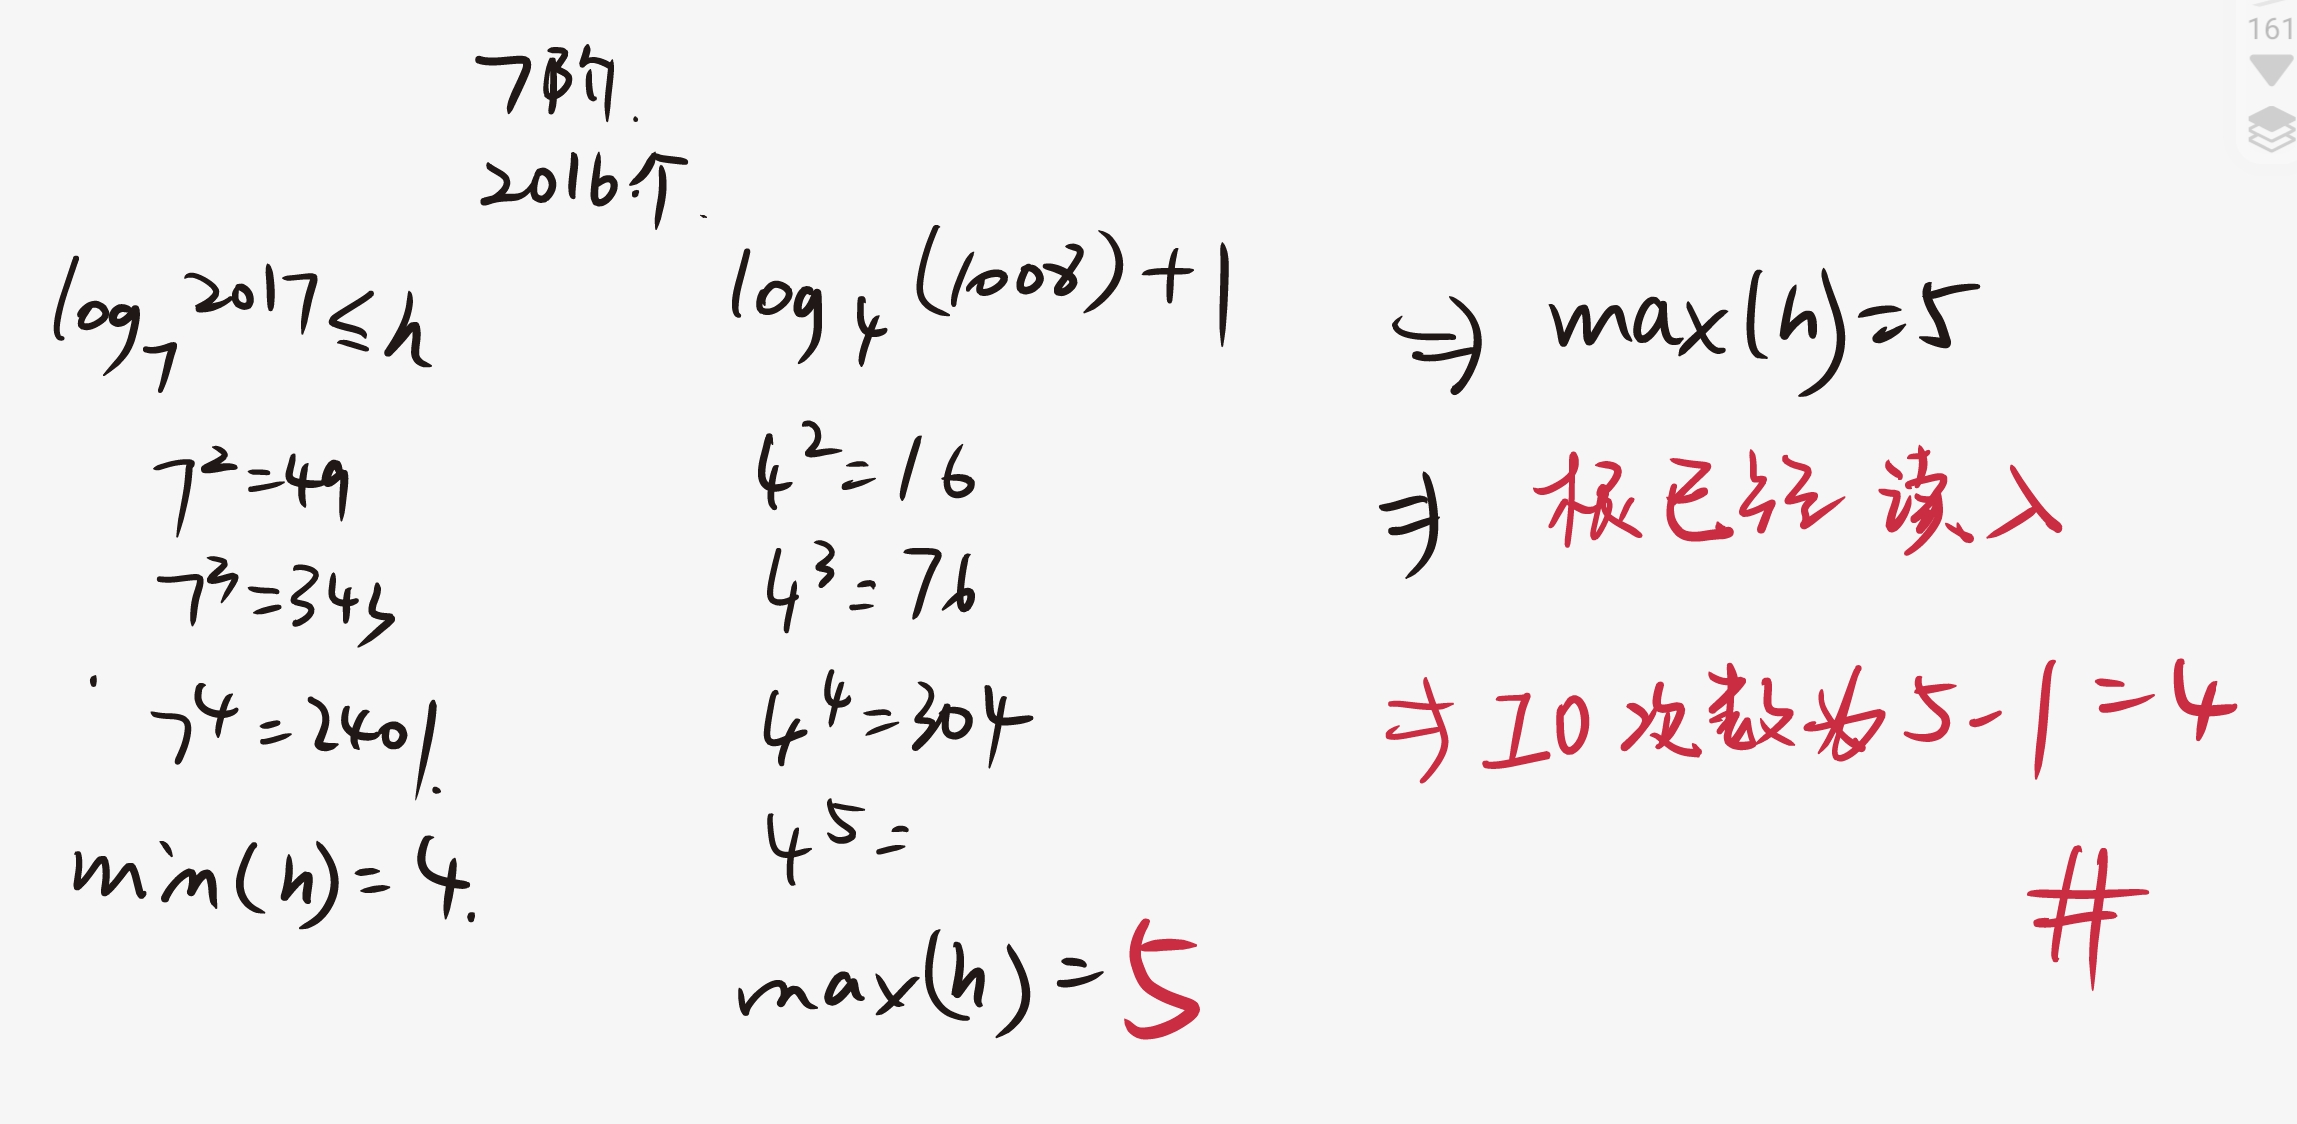 7阶.
2016个.
log₇2017≤h
7²=49
7³=343
7⁴=2401.
min(h)=4.
log₄(1008)+1
4²=16
4³=76
4⁴=304
4⁵=
max(h)=5
⇒ max(h)=5
⇒ 根已经读入
⇒ IO次数为5-1=4
#
161